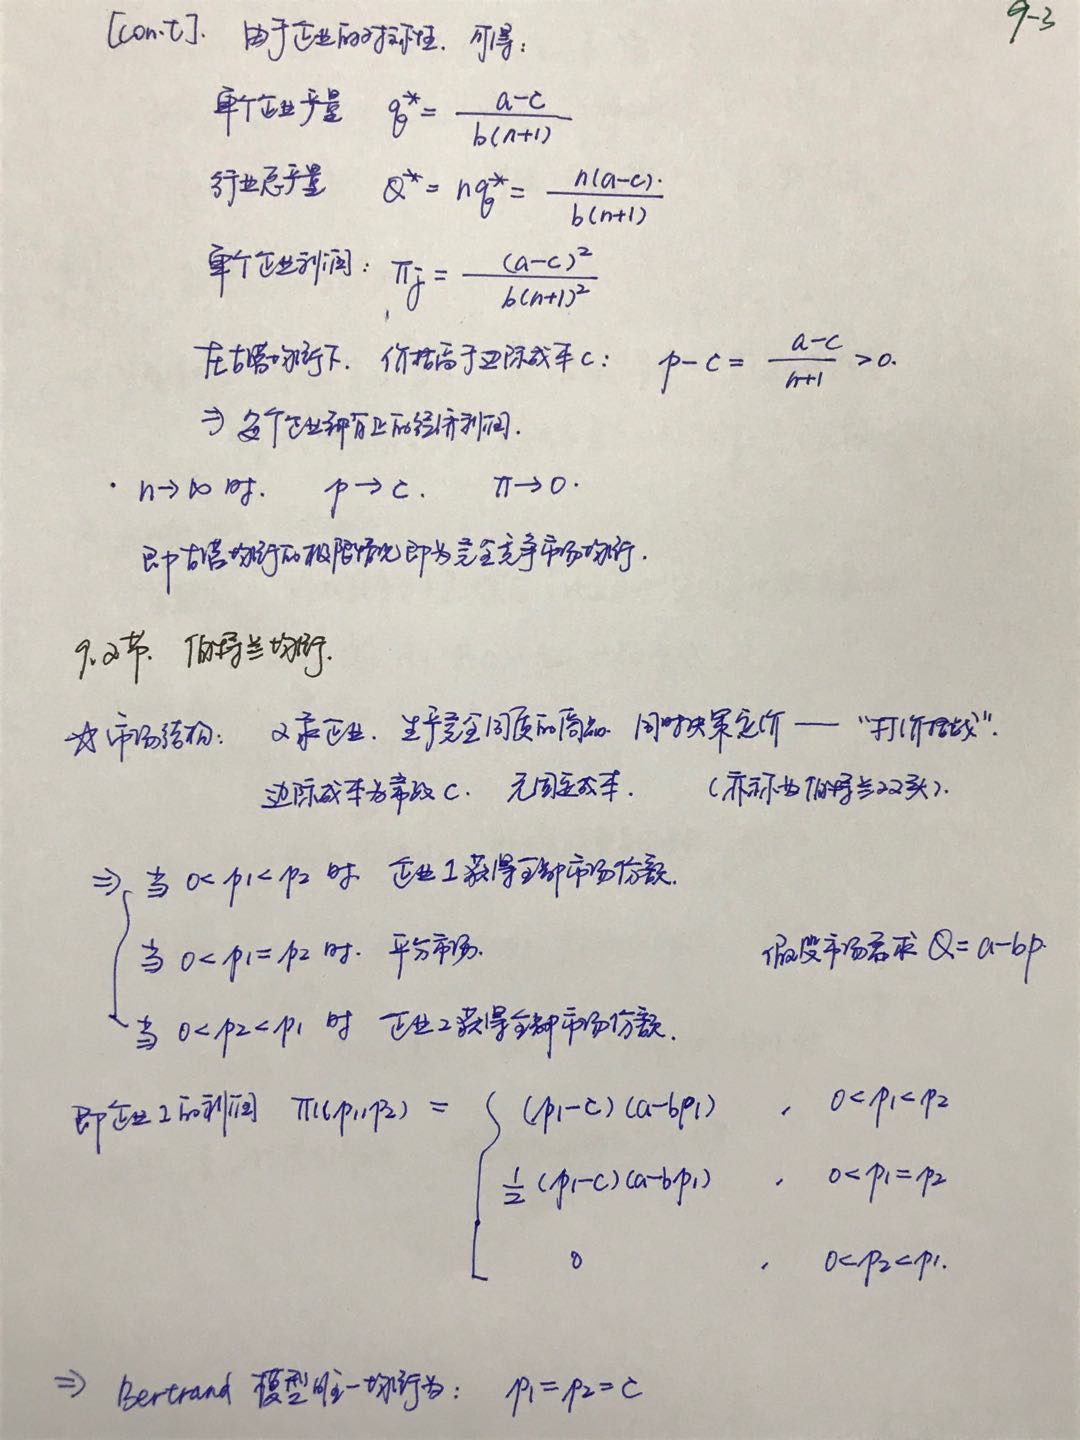 9-3
[con.t]. 由于企业的对称性, 可得:
单个企业产量 q* = (a-c) / b(n+1)
行业总产量 Q* = nq* = n(a-c) / b(n+1)
单个企业利润: πj = (a-c)² / b(n+1)²
在古诺均衡下, 价格高于边际成本c: p-c = (a-c) / (n+1) >0.
⇒ 每个企业都有正的经济利润.
· n→∞ 时. p→c. π→0.
即古诺均衡的极限情况即为完全竞争市场均衡.
9.2节. 伯特兰均衡.
☆ 市场结构: 2家企业. 生产完全同质的商品. 同时决策定价 —— “打价格战”.
边际成本为常数c. 无固定成本. (亦称为伯特兰双头).
⇒ { 当 0<p1<p2 时 企业1获得全部市场份额.
当 0<p1=p2 时. 平分市场. 假设市场需求 Q=a-bp.
当 0<p2<p1 时 企业2获得全部市场份额.
即企业1的利润 π1(p1,p2) = { (p1-c)(a-bp1) , 0<p1<p2
½(p1-c)(a-bp1) , 0<p1=p2
0 , 0<p2<p1.
⇒ Bertrand 模型唯一均衡为: p1=p2=c